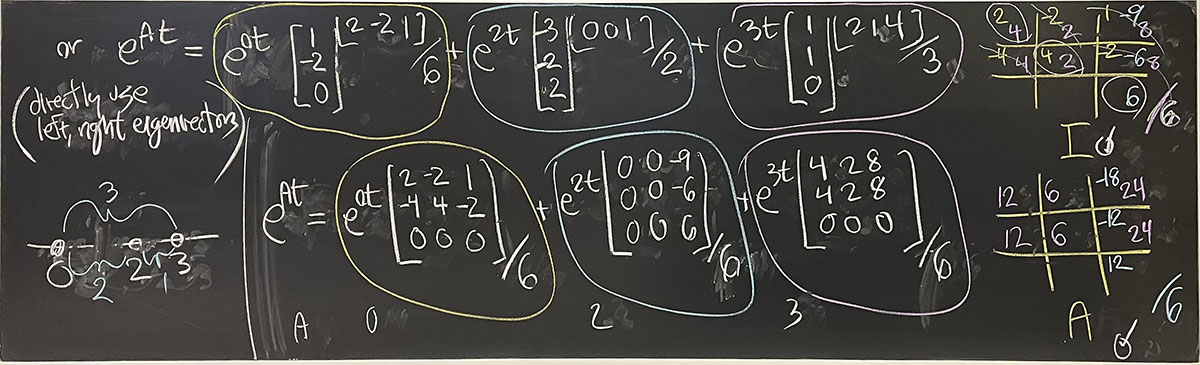 or e^{At} = e^{0t} [1 -2 0] [2 -2 1] /6 + e^{2t} [-3 -2 2] [0 0 1] /2 + e^{3t} [1 1 0] [2 1 4] /3
(directly use
left, right eigenvectors)
e^{At} = e^{0t} [2 -2 1 / -4 4 -2 / 0 0 0] /6 + e^{2t} [0 0 -9 / 0 0 -6 / 0 0 6] /6 + e^{3t} [4 2 8 / 4 2 8 / 0 0 0] /6
3
0 2 3
2 1
A 0 2 3
2 4 | -2 2 | 1 -9 8
-4 4 | 4 2 | -2 -6 8
6 /6
I
12 | 6 | -18 24
12 | 6 | -12 24
12 /6
A